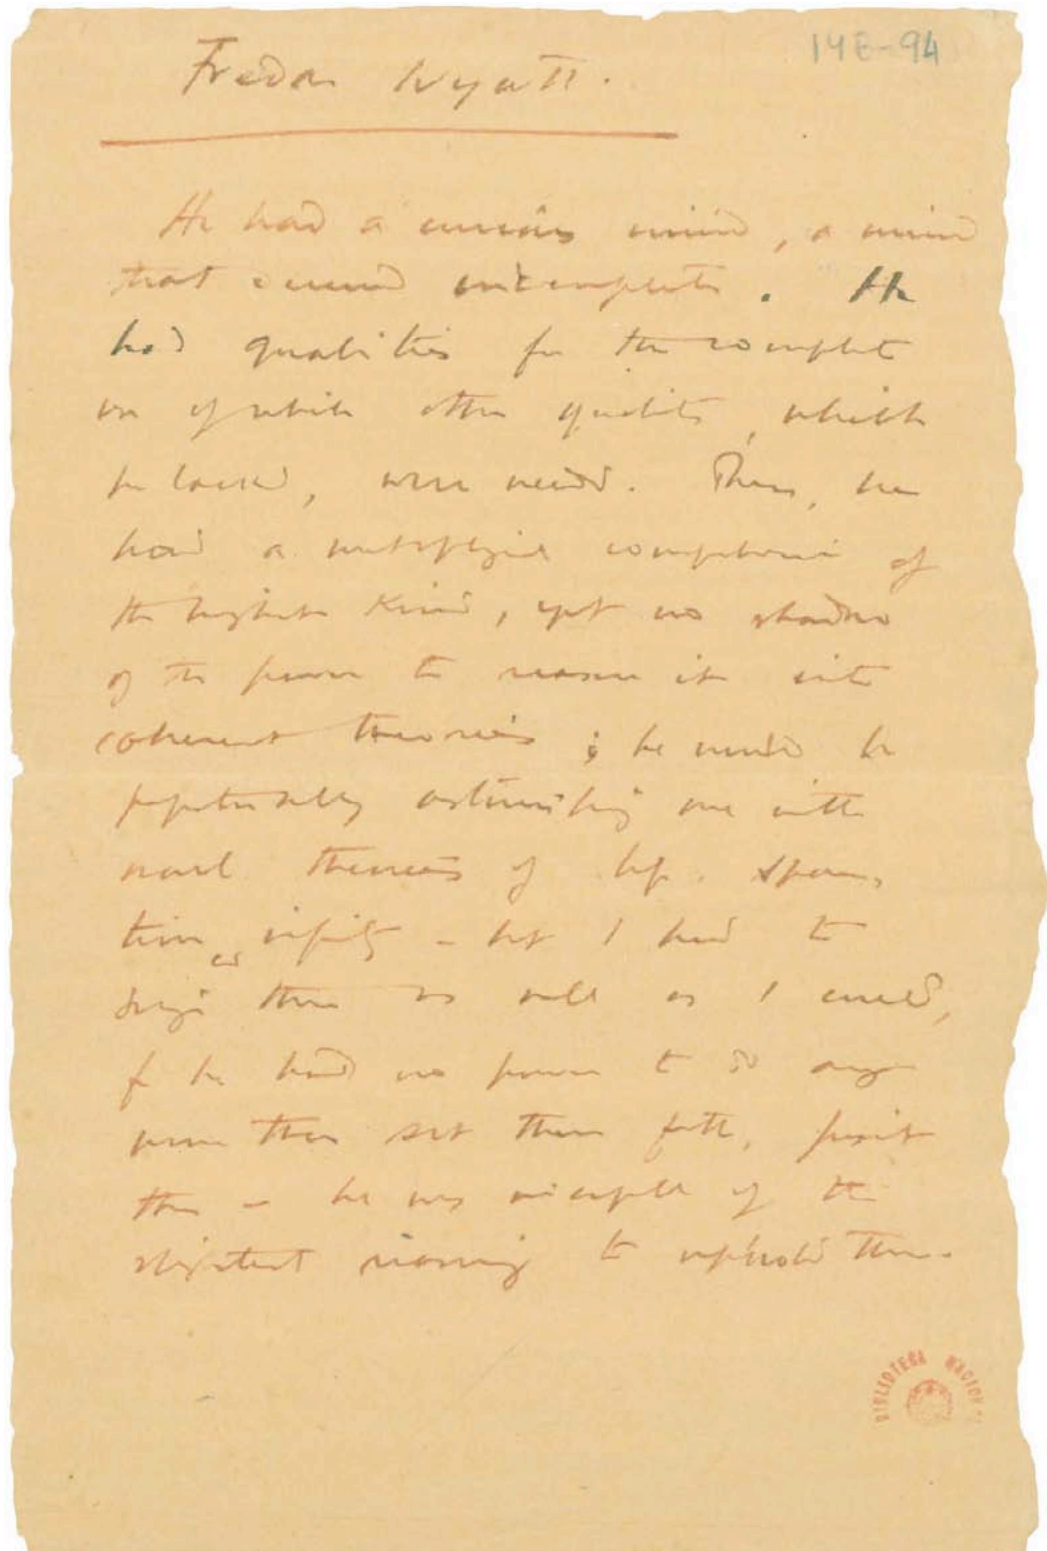 14E-94
Fredk Wyatt.
He had a curious mind, a mind
that seemed incomplete. He
had qualities for the complet
ion of which other qualities, which
he lacked, were needed. Thus, he
had a metaphysical comprehension of
the highest kind, yet no shadow
of the power to reason it into
coherent theories; he would be
perpetually astonishing me with
novel theories of life, space,
time, infinity – but I had to
them as well as I could,
for he had no power to do any
more than set them forth,
them – he was incapable of the
slightest reasoning to uphold them.
BIBLIOTECA NACIONAL